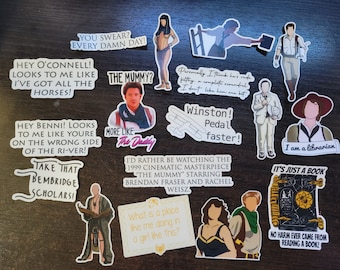 YOU SWEAR?
EVERY DAMN DAY!
HEY O'CONNELL!
LOOKS TO ME LIKE
I'VE GOT ALL THE
HORSES!
THE MUMMY?
MORE LIKE
The Daddy
Personally, I think he's
filthy
I don't like him one bit
Winston!
Pedal
faster!
HEY BENNI! LOOKS
TO ME LIKE YOURE
ON THE WRONG SIDE
OF THE RI-VER!
I am a librarian.
TAKE THAT
BEMBRIDGE
SCHOLARS!
I'D RATHER BE WATCHING THE
1999 CINEMATIC MASTERPIECE
"THE MUMMY" STARRING
BRENDAN FRASER AND RACHEL
WEISZ.
What is a place
like me doing in
a girl like this?
IT'S JUST A BOOK
NO HARM EVER CAME FROM
READING A BOOK!